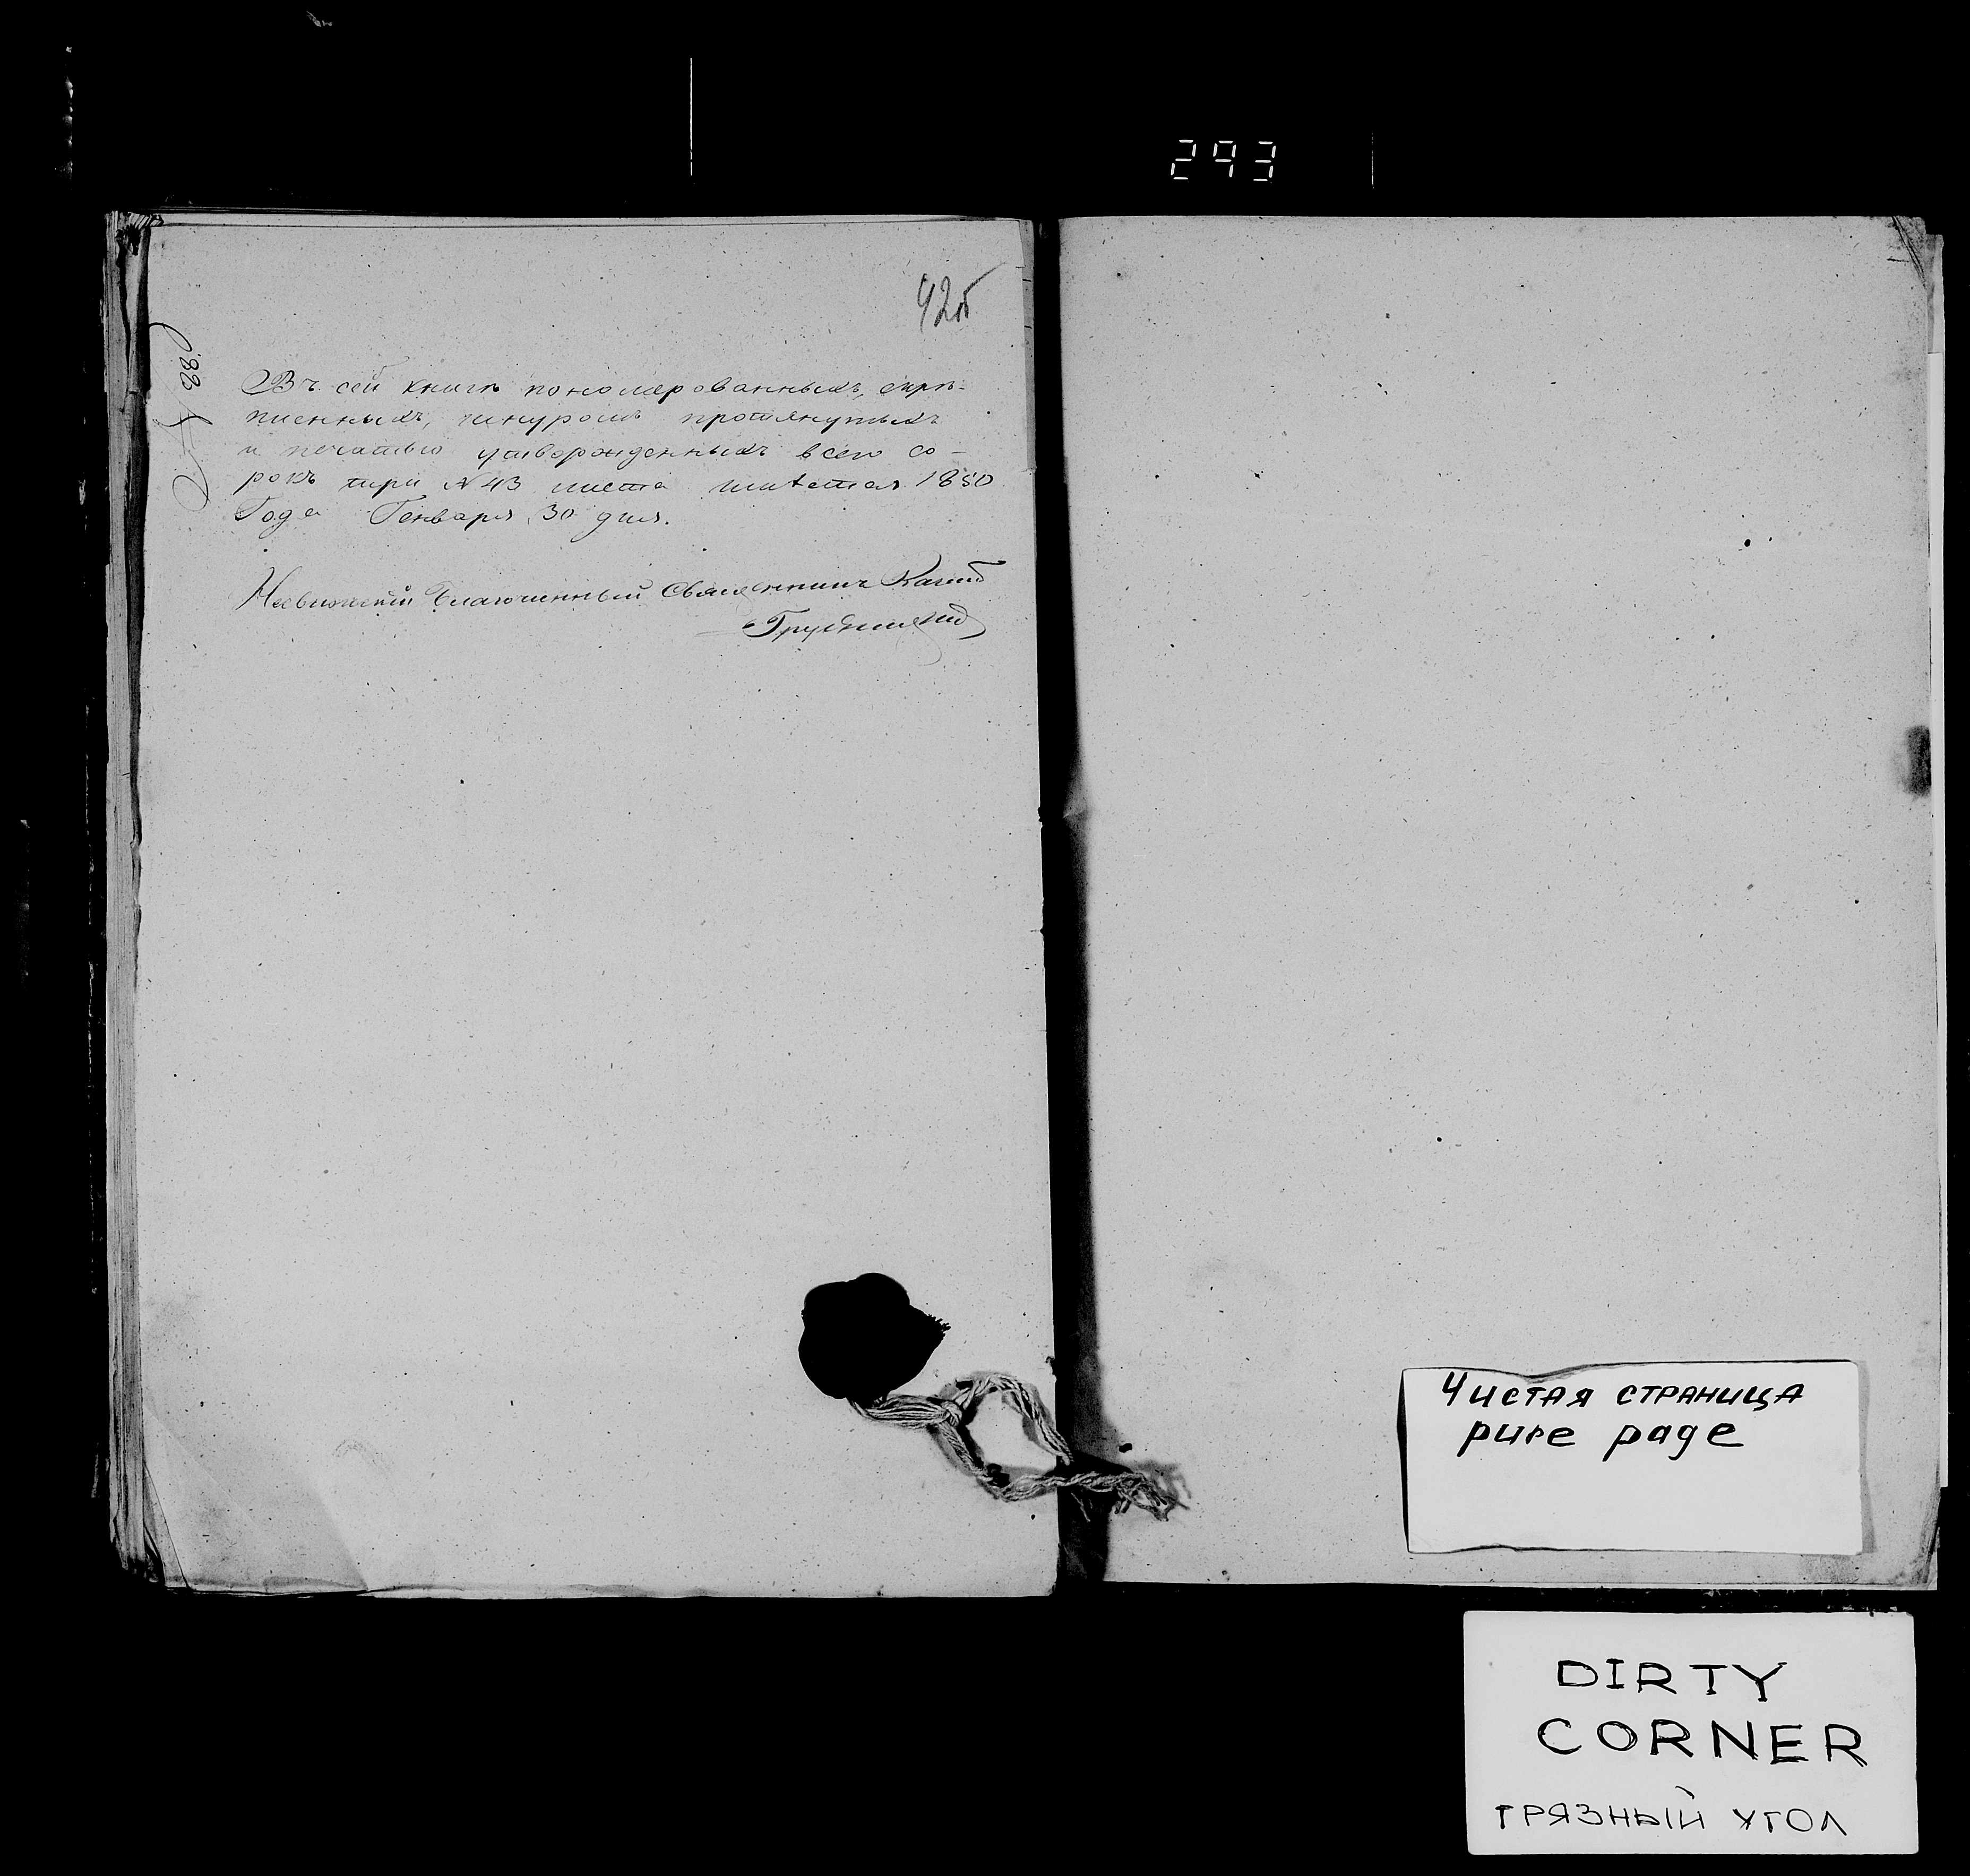 293
42б
Въ сей книгѣ пономерованныхъ, скрѣ-
пленныхъ, шнуромъ протянутыхъ
и печатью утвержденныхъ всего со-
рокъ три №43 листа 1850
Года Генваря 30 дня.
Несвижскій Благочинный Священникъ
Чистая страница
pure page
DIRTY
CORNER
ГРЯЗНЫЙ УГОЛ